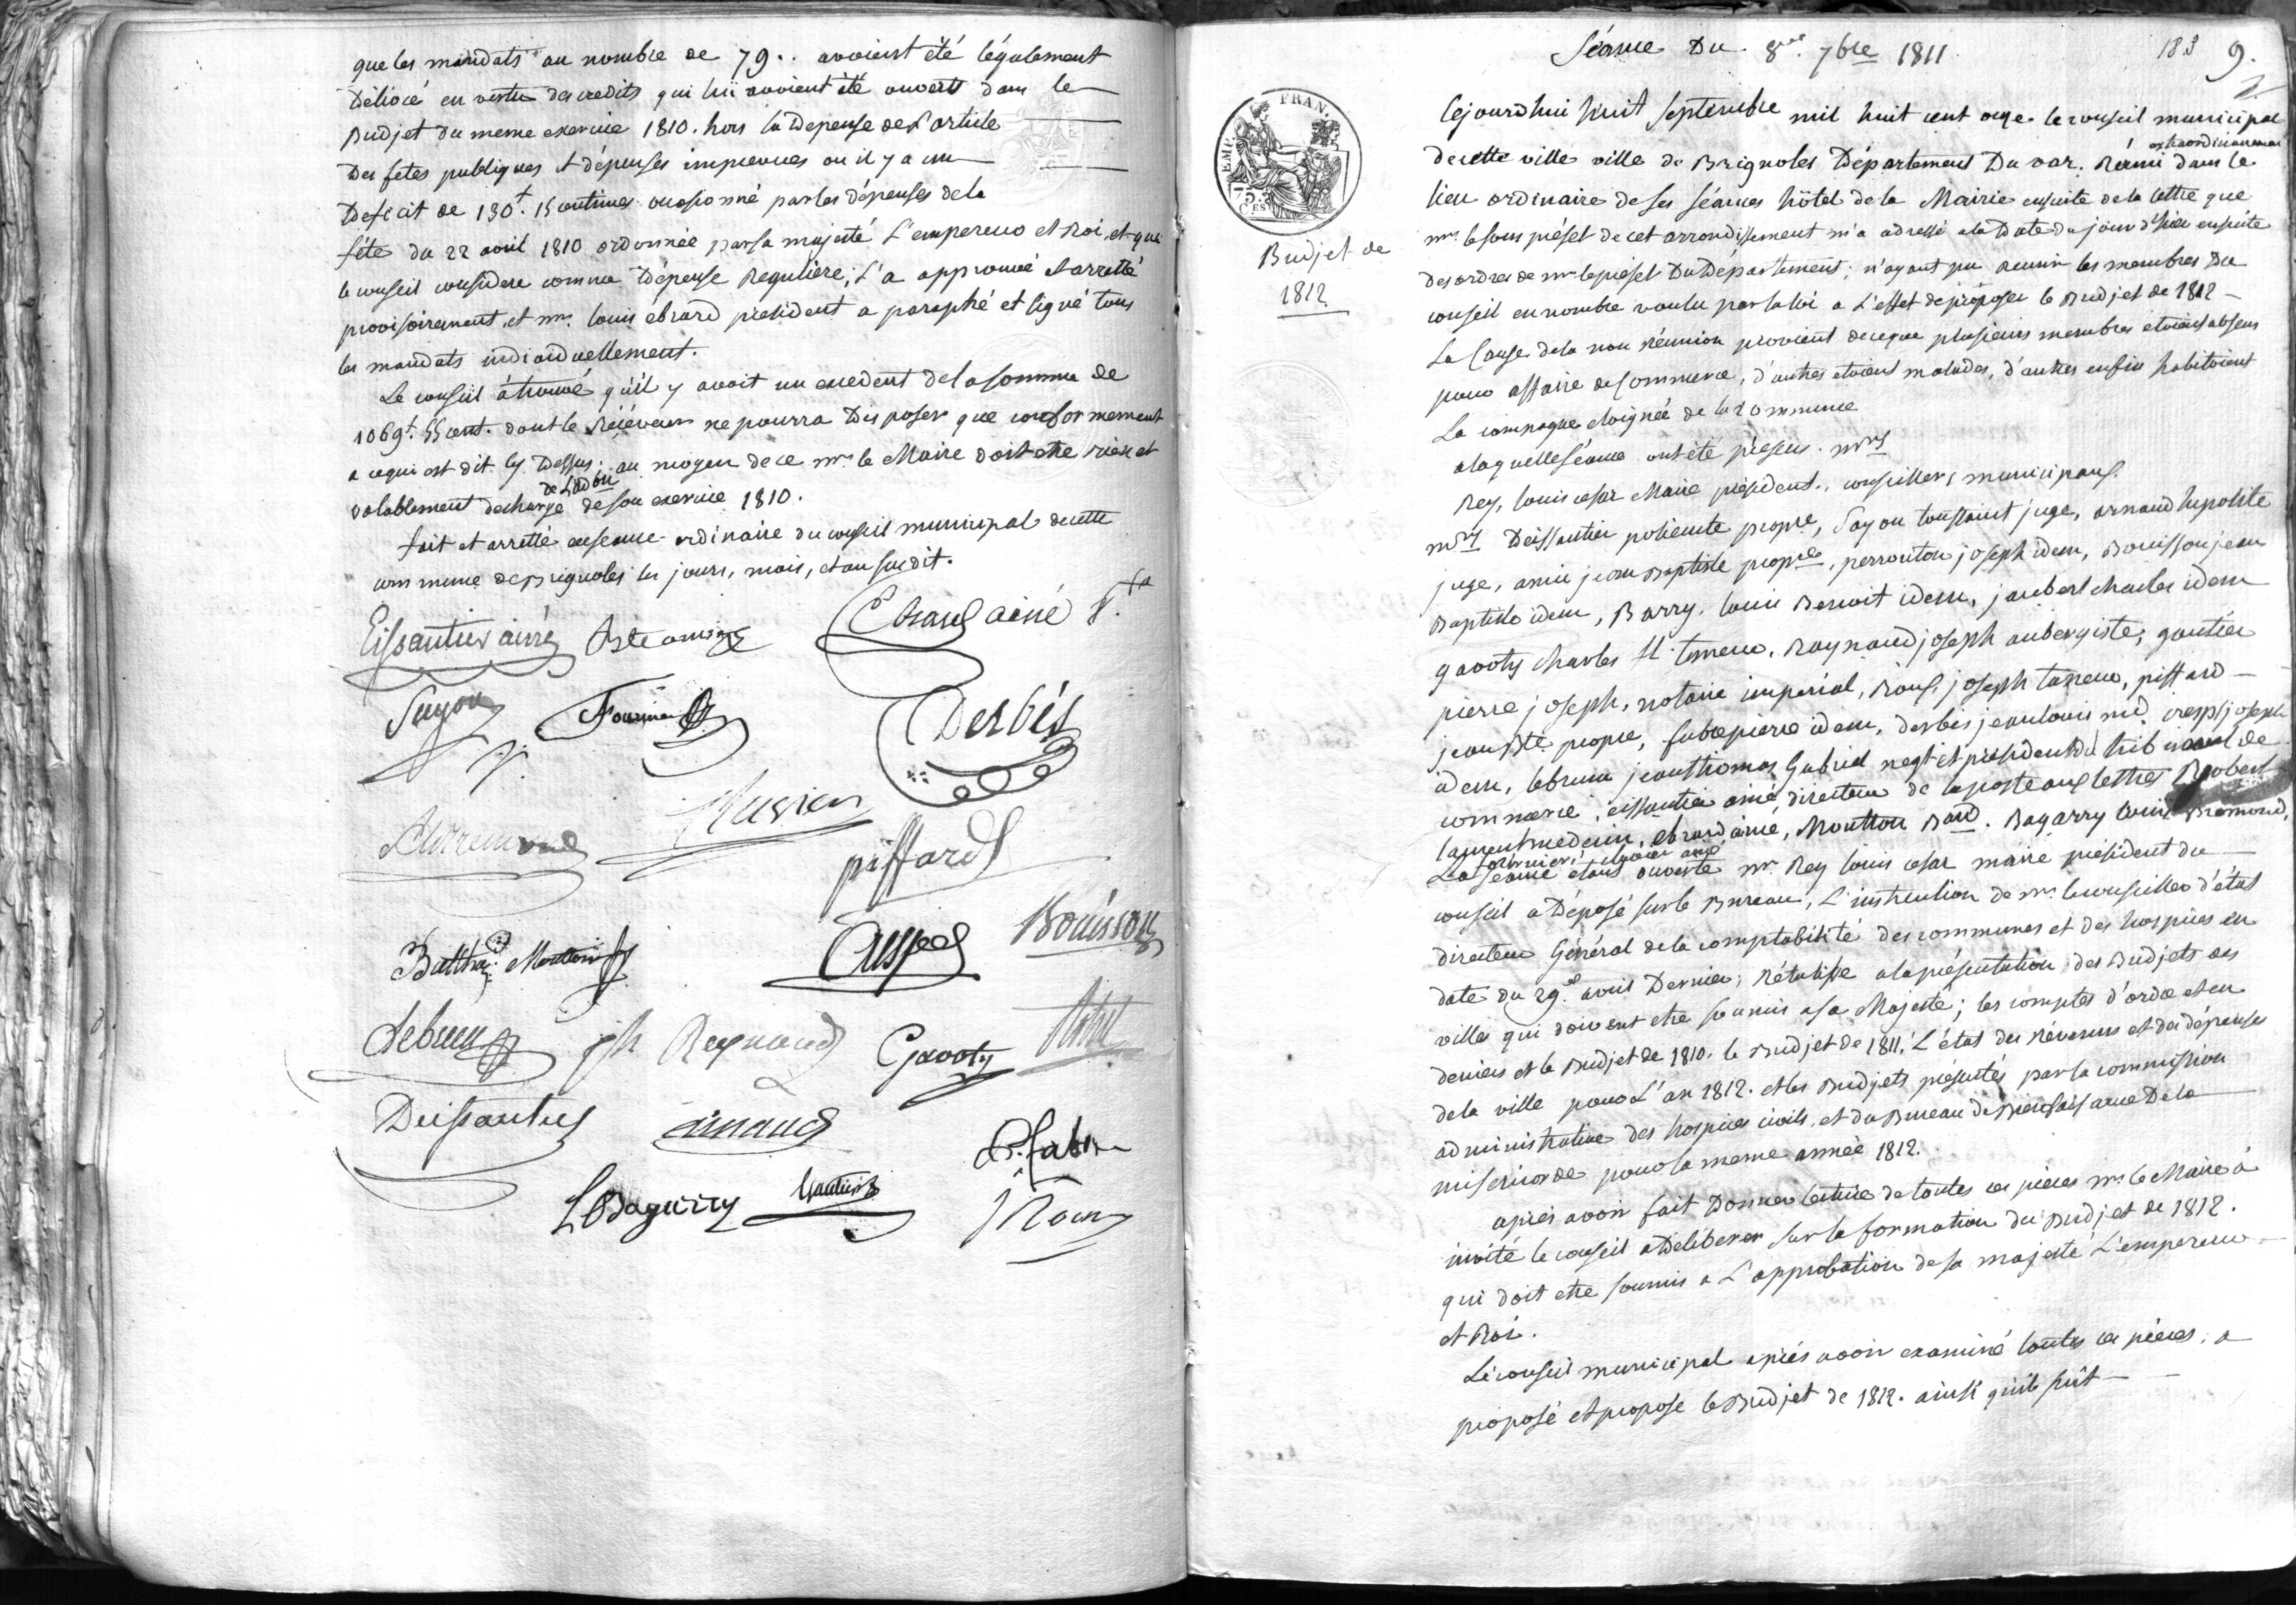 que les mandats au nombre de 79.. avoient été légalement
Délivré en vertu des credits qui lui avoient été ouverts dans le
Budjet du meme exercice 1810. hors la Depense de l'article
Des fetes publiques et dépenses imprevues ou il y a un
Deficit de 130f. 15 centimes occasionné par les dépenses de la
fête du 22 avril 1810 ordonnée par sa majesté L'empereur et Roi, et que
le conseil considere comme Dépense Reguliere, L'a approuvé et arretté
provisoirement, et mr. louis ebrard president a paraphé et signé tous
les mandats individuellement.
Le conseil à trouvé qu'il y avoit un excedent de la somme de
1069f. 55 cent. dont le Receveur ne pourra Disposer que conformement
a ce qui est dit cy Dessus; au moyen de ce mr. le Maire doit etre et
valablement dechargé de son exercice 1810.
fait et arretté en seance ordinaire du conseil municipal de cette
commune de Brignoles les jours, mois, et an susdit.
Eissautier ainé
Ebrard ainé
Sayou Fournier
Derbés
piffard
Balthd. Moutton
Crespel Bouisson
Lebrun jh Reynaud Gavoty
Deissautier arnaud
P. fabre
LBagarry Gautier
J Roux
Séance Du 8me. 7bre 1811
183 9.
EMP. FRAN.
75 CES
Budjet de
1812
Cejourd'hui huit Septembre mil huit cent onze le conseil municipal
extraordinairement
de cette ville ville de Brignoles Département Du var. Réuni dans le
lieu ordinaire de ses séances hôtel de la Mairie ensuite de la lettre que
mr. le sous préfet de cet arrondissement m'a adressé a la Date du jour d'hier ensuite
des ordres de mr le préfet Du Département; n'ayant pu reunir les membres du
conseil en nombre voulu par la loi a L'effet de proposer le Budjet de 1812
La Cause de la non réunion provient de ce que plusieurs membres etoient absens
pour affaire de Commerce, d'autres etoient malades, d'autres enfin habitoient
La campagne eloignée de la commune
a laquelle séance ont été présens. mrs
Rey, louis cesar Maire président, conseillers municipaux.
mrs Deissautier propre, Sayou toussaint juge, arnaud hypolite
juge, amic jean Baptiste propre, perroutou joseph idem, Bouisson jean
Baptiste idem, Barry louis Benoit idem, jaubert charles idem
gavoty charles st. Raynaud joseph aubergiste, gautier
pierre joseph, notaire imperial, Roux joseph taneur, piffard
jean Bte propre, fabre pierre idem, derbés jean louis md. crespel joseph
idem, lebrun jean thomas Gabriel negt et président du tribunal de
commerce, eissautier ainé, directeur de la poste aux lettres Robert
laurent medecin, ebrard ainé, Moutton Bard. Bagarry louis Bremond,
fournier
La Séance étant ouverte mr. Rey louis cesar maire président du
conseil a Déposé sur le Bureau, L'instruction de mr. le conseiller d'état
directeur Général de la comptabilité des communes et des hospices en
date du 29e avril Dernier, Rélative a la présentation des Budjets des
villes qui doivent etre soumis a sa Majesté; les comptes d'ordre et en
deniers et le Budjet de 1810. le Budjet de 1811. L'état des Révenus et des dépenses
de la ville pour L'an 1812. et les Budjets présentés par la commission
administrative des hospices civils, et du Bureau de Bienfaisance De la
misericorde pour la meme année 1812.
après avoir fait Donner lecture de toutes ces pieces mr. le Maire à
invité le conseil a Deliberer sur la formation du Budjet de 1812.
qui doit etre soumis a L'approbation de sa majesté L'empereur
et Roi.
Le conseil municipal après avoir examiné toutes ces pieces, a
proposé et propose le Budjet de 1812. ainsi qu'il suit